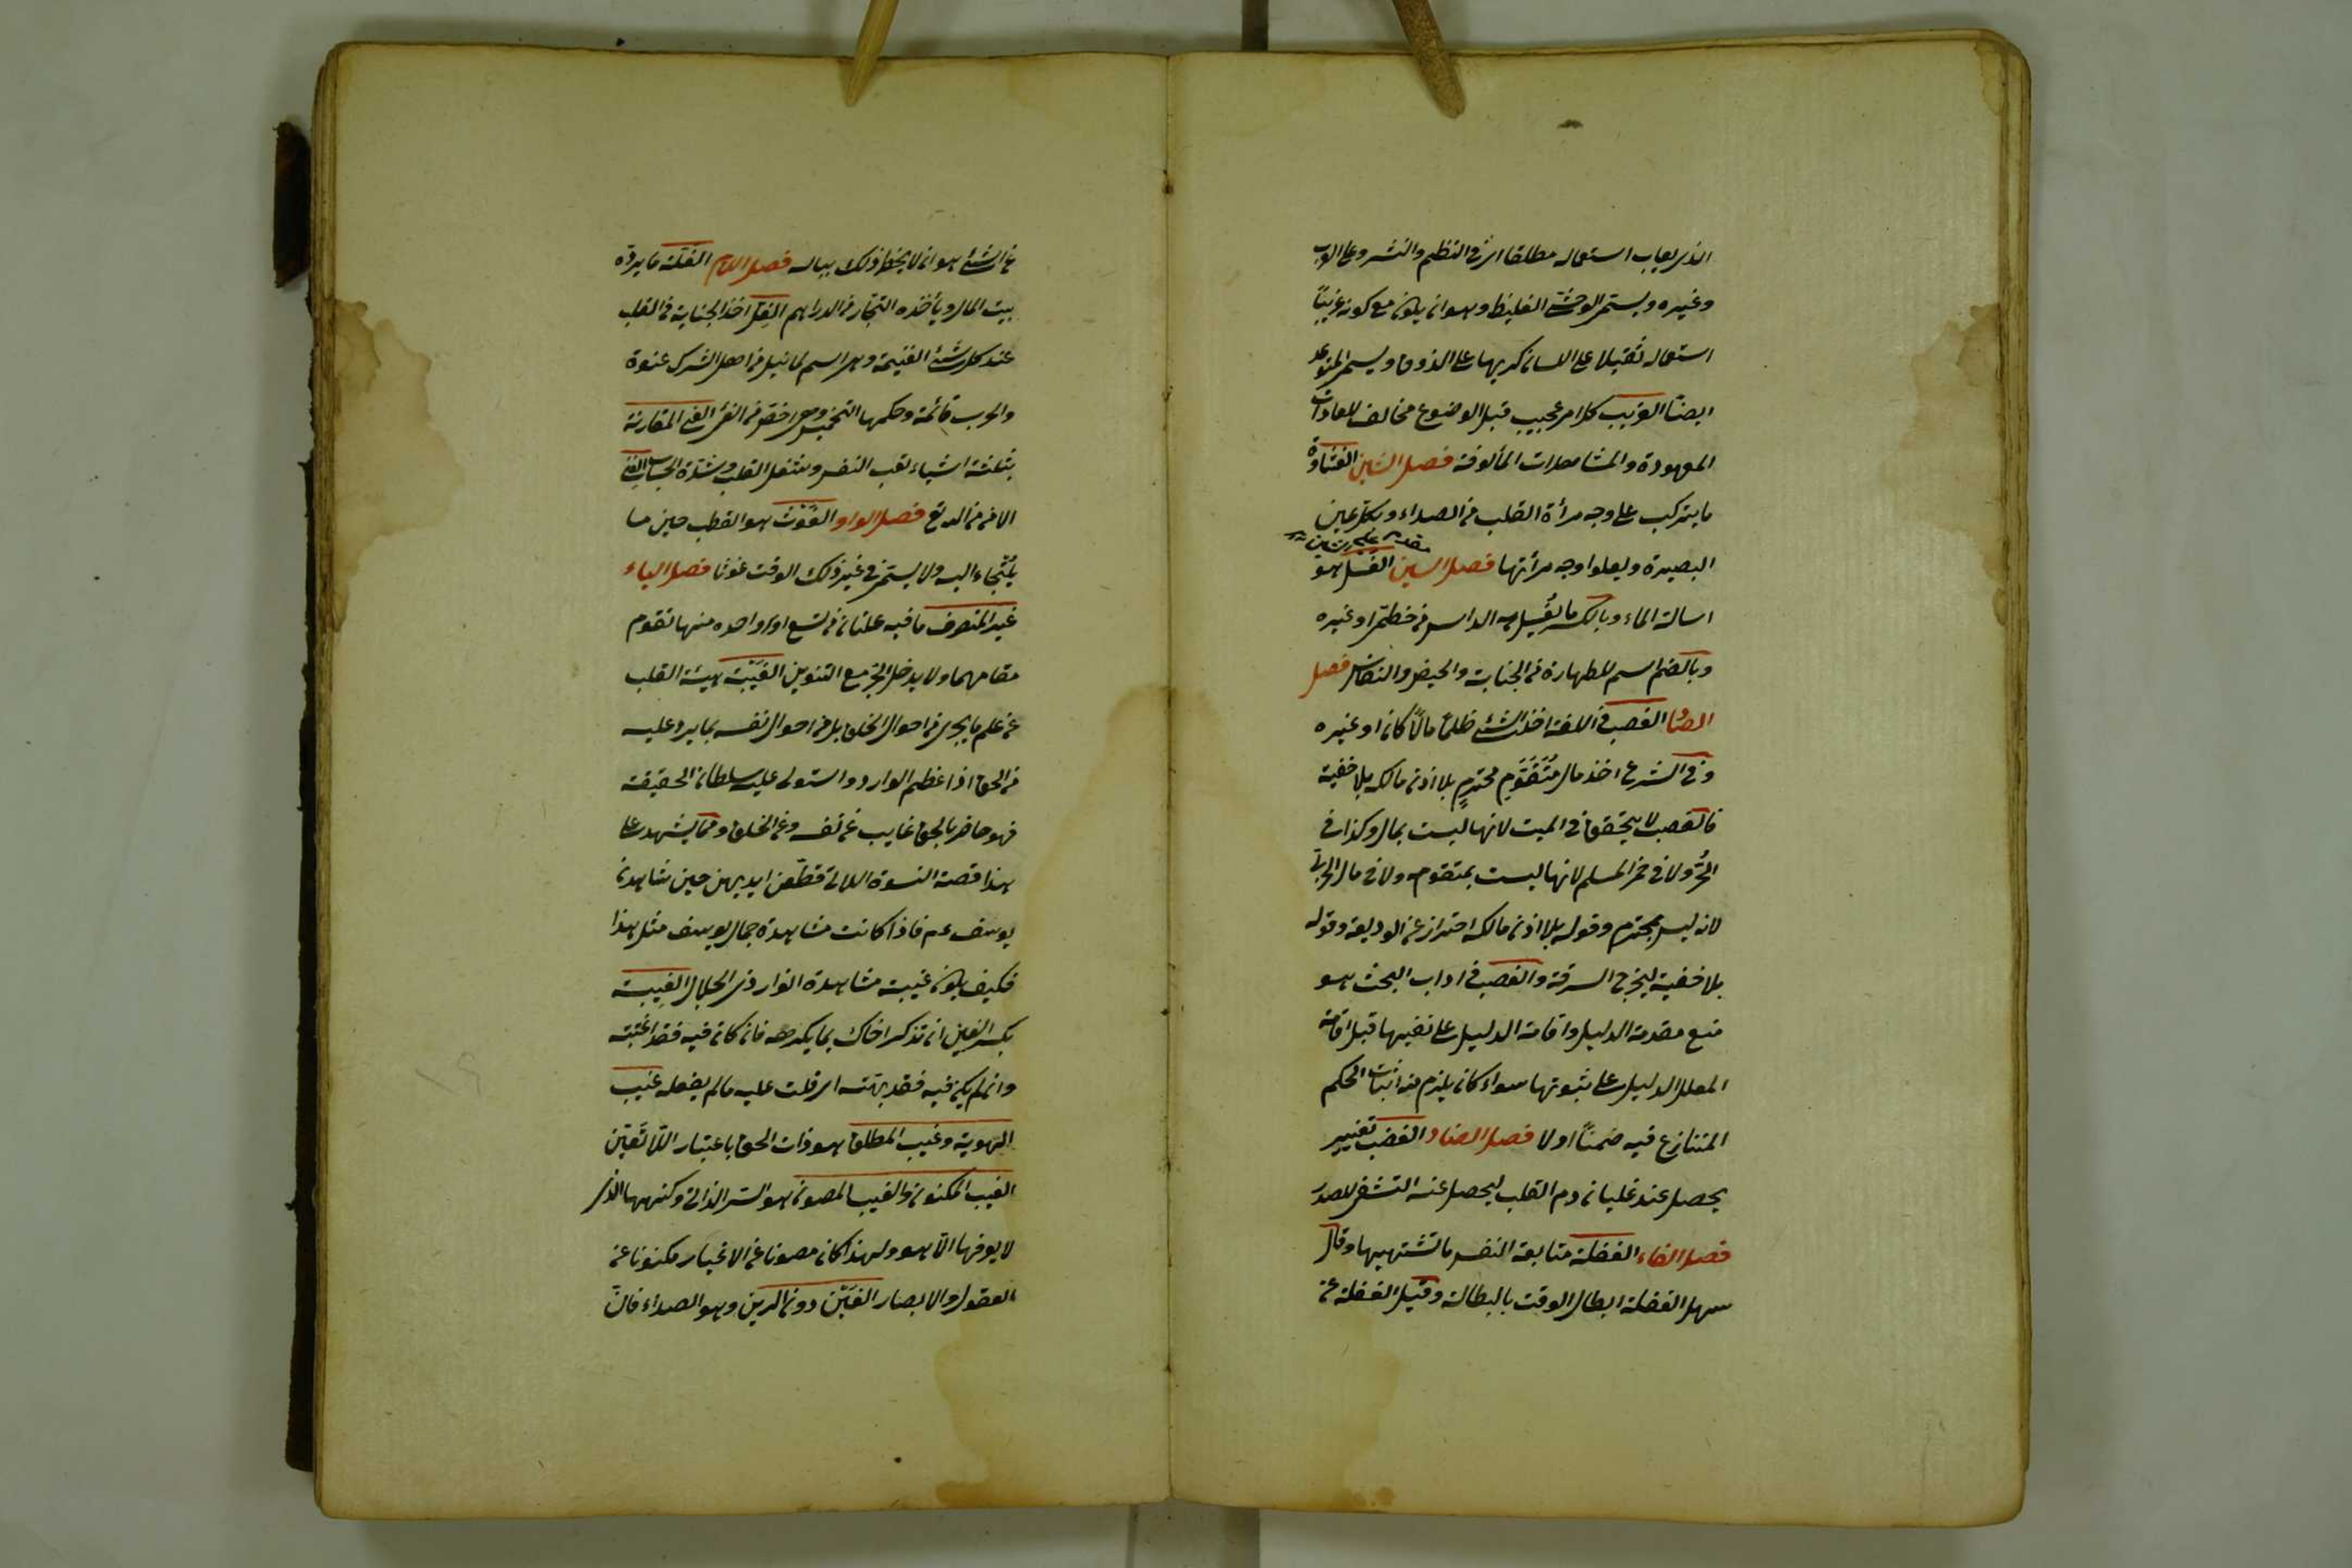 الذى يعاب استعماله مطلقا اى فى النظم والنثر وعلى العرب
وغيره ويسمى الوحشى الغليظ وهو ان يكون مع كونه غريبًا
استعماله ثقيلا على اللسان كريها على الذوق ويسمى المتوعر
ايضًا الغريب كل امر عجيب قبل الوضوع مخالف للعادات
المعهودة والمشاهدات المألوفة فصل الشين الغشاوة
ما يتركب على وجه مرأة القلب من الصداء ويكل عين
مقدم على شين
البصيرة ويعلوا وجه مرأتها فصل السين الغسل هو
اسالة الماء وبالكسر ما يُغسل به الراس من خطمى او غيره
وبالضم اسم للطهارة من الجنابة والحيض والنفاس فصل
الصاد الغصب فى اللغة اخذ الشئ ظلماً مالًا كان او غيره
وفى الشرع اخذ مال مُتَقَوِّمٍ محترمٍ بلا اذن مالكه بلا خفية
فالغصب لا يتحقق فى الميت لانها ليست بمال وكذا فى
الحُرّ ولا فى خمر المسلم لانها ليست بمتقوم ولا فى مال الحربى
لانه ليس بمحترم وقوله بلا اذن مالكه احتراز عن الوديعة وقوله
بلا خفية ليخرج السرقة والغصب فى اداب البحث هو
منع مقدمة الدليل واقامة الدليل على نفيها قبل اقامة
المعلل الدليل على ثبوتها سواء كان يلزم منه اثبات الحكم
المتنازع فيه ضمنًا او لا فصل الضاد الغضب تغيير
يحصل عند غليان دم القلب ليحصل عنه التشفى للصدر
فصل الفاء الغفلة متابعة النفس ما تشتهيها وقال
سهل الغفلة ابطال الوقت بالبطالة وقيل الغفلة عن
عن الشئ هو ان لا يخطر ذلك بباله فصل اللام الغلة ما يرده
بيت المال ويأخذه التجار من الدراهم الغِل اخذ الجناية فى القلب
عند كل شئ الغنيمة وهى اسم لما نيل من اهل الشرك عنوة
والحرب قائمة وحكمها التخميس وهى اخص من الفئ الغنى المقارنة
بثلثة اشياء تعب النفس وشغل القلب وشدة الحساب الغنى
الا من من الله تع فصل الواو الغَوْث هو القطب حين ما
يُلتجاء اليه ولا يسمى فى غير ذلك الوقت غوثا فصل الياء
غير المنصرف ما فيه علتان من تسع او واحدة منها تقوم
مقامهما ولا يدخل الجر مع التنوين الغَيْبَة غيبة القلب
عن علم ما يجرى من احوال الخلق بل من احوال نفسه بما يرد عليه
من الحق اذا عظم الوارد واستولى عليه سلطان الحقيقة
فهو حاضر بالحق غايب عن نفسه وعن الخلق ومما يشهد على
هذا قصة النسوة اللاتى قطّعن ايديهن حين شاهدن
يوسف عم فاذا كانت مشاهدة جمال يوسف مثل هذا
فكيف يكون غيبة مشاهدة انوار ذى الجلال الغِيبة
بكسر الغين ان تذكر اخاك بما يكرهه فان كان فيه فقد اغتبته
وان لم يكن فيه فقد بهته اى قلت عليه ما لم يفعله غيب
الهوية وغيب المطلق هو ذات الحق باعتبار اللا تَعَيّن
الغيب المكنون والغيب المصون هو السر الذاتى وكنهها الذى
لا يعرفها الّا هو ولهذا كان مصونا عن الاغيار مكنونا عن
العقول والابصار الغَيْن دون الرين وهو الصداء فان